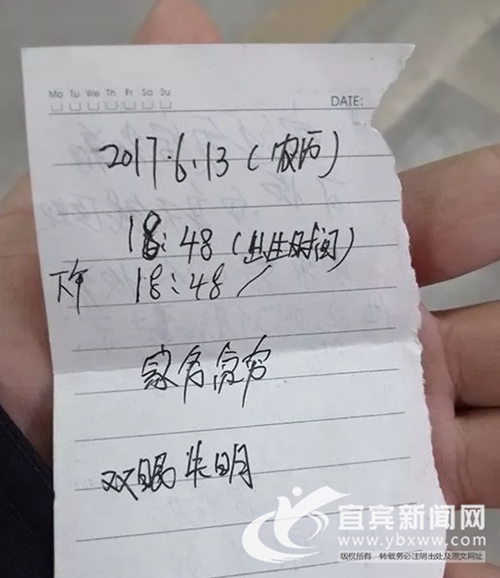 Mo Tu We Th Fr Sa Su
DATE:
2017.6.13(农历)
18:48(出生时间)
下午 18:48
家舍贫穷
双眼失明
宜宾新闻网
www.ybxww.com
版权所有 转载务必注明出处及原文网址